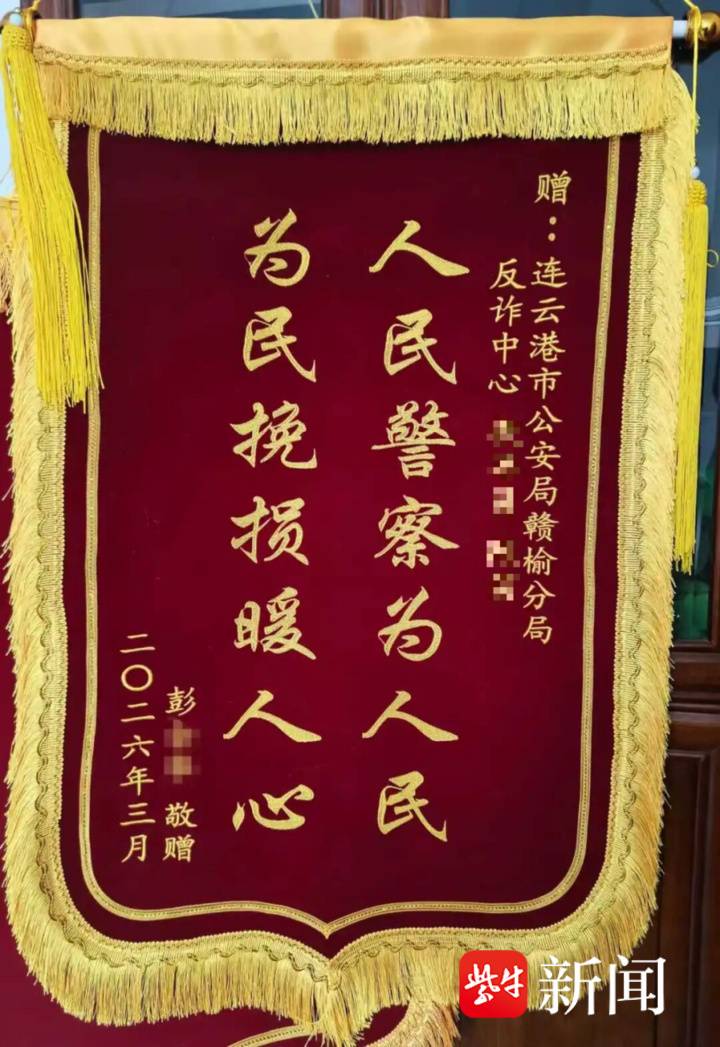 赠：连云港市公安局赣榆分局
反诈中心
人民警察为人民
为民挽损暖人心
彭 敬赠
二〇二六年三月
紫牛新闻